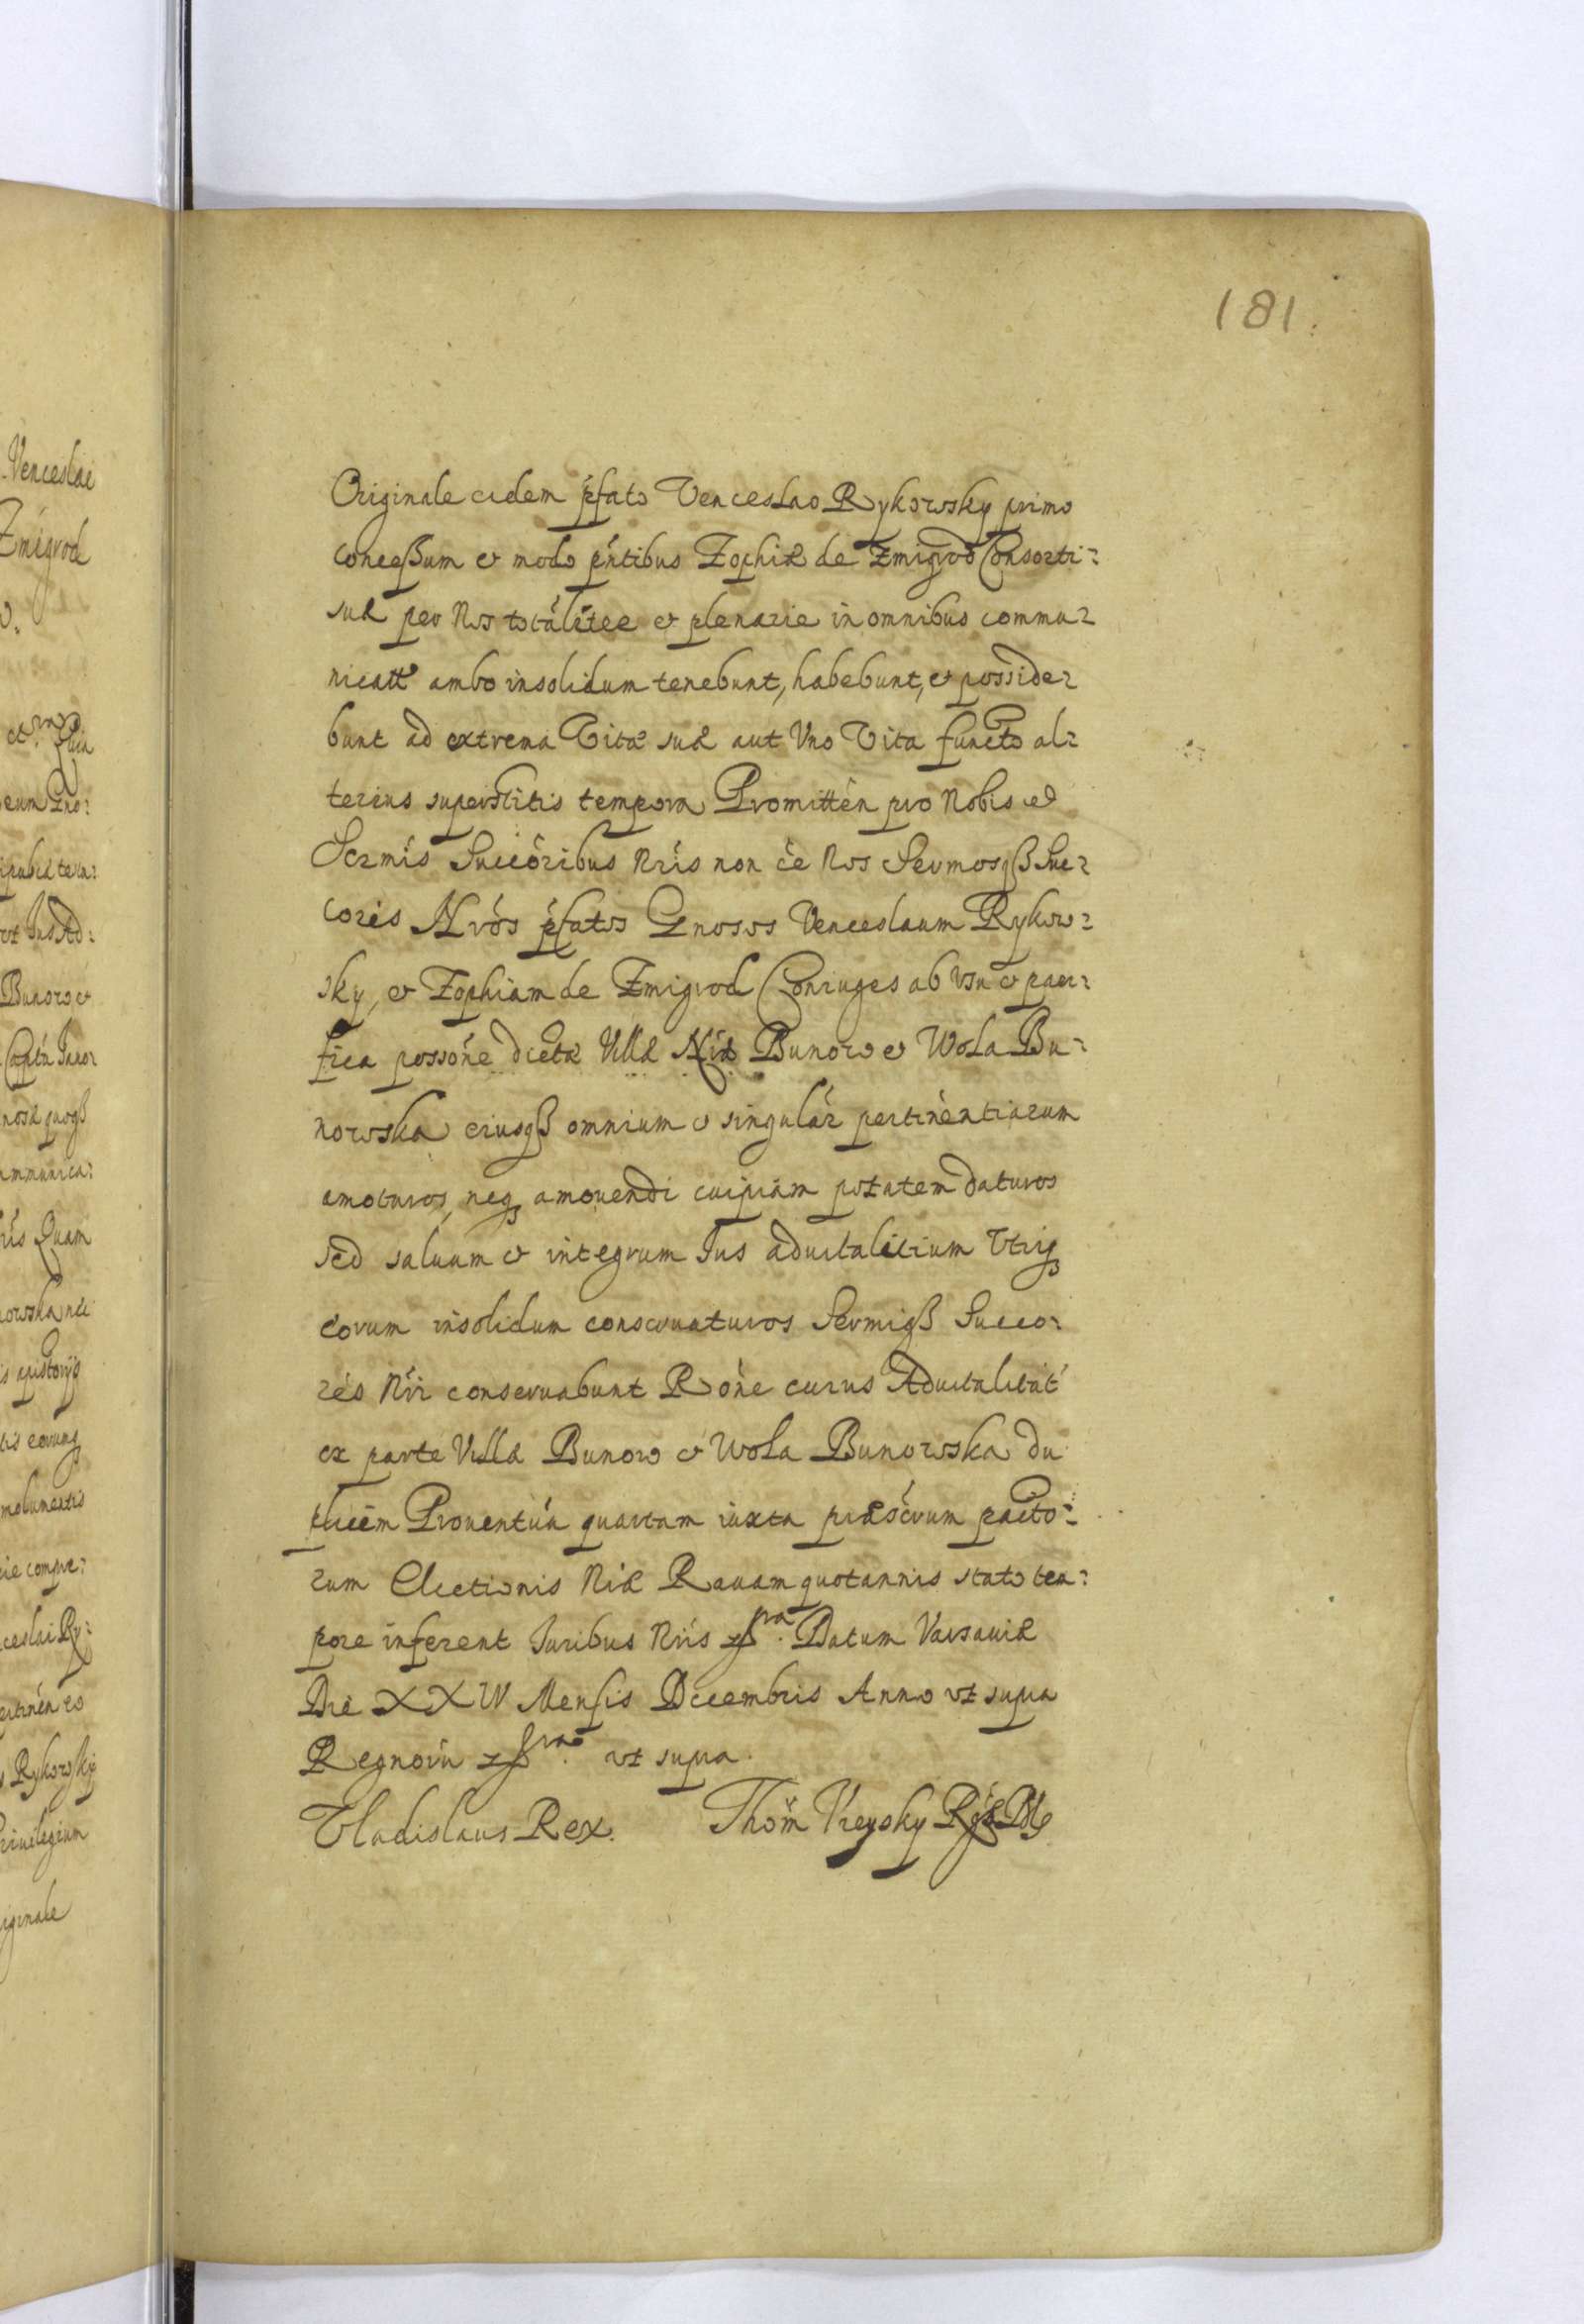 181.
Originale eidem pfato Venceslao Rykowsky primo
concessum et modo pntibus Zophiæ de Zmigrod Consorti=
suæ per Nos totaliter et plenarie in omnibus commu=
nicatt ambo insolidum tenebunt, habebunt, et posside=
bunt ad extrema Vitæ suæ aut Uno Vita functo al=
terius superstitis tempora Promitten pro Nobis et
Sermis Succoribus Nris non ee Nos Sermosqß Suc=
cores Nros pfatos Gnosos Venceslaum Rykow=
sky, et Zophiam de Zmigrod Coniuges ab usu et paci=
fica possone dictæ Villæ Nræ Bunow et Wola Bu=
nowska eiusqß omnium et singular pertinentiarum
amoturos, neqß amouendi cuipiam ptatem daturos
sed saluum et integrum Ius aduitalitium Utriqß
eorum insolidum conseruaturos Sermiqß Succo=
res Nri conseruabunt Rone cuius Aduitalitat
ex parte Villæ Bunow et Wola Bunowska du
plicem Prouentuu quartam iuxta præscrum pacto=
rum Electionis Nræ Rauam quotannis stato tem=
pore inferent Iuribus Nris Datum Varsauiæ
Die XXIV Mensis Decembris Anno ut supra
Regnoru ut supra.
Vladislaus Rex. Thom Vieysky
Venceslai
Zmigrod
Bunow et
nosæ quoqß
mmunica=
Quam
owska
molumentis
ceslai Ry=
Rykowsky
riuilegium
iginale